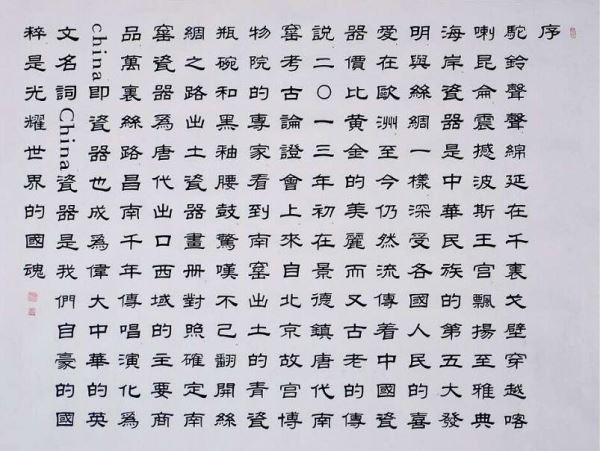 序
駝鈴聲聲綿延在千裏戈壁穿越喀
喇昆侖震撼波斯王宫飄揚至雅典
海岸瓷器是中華民族的第五大發
明與絲綢一樣深受各國人民的喜
愛在歐洲至今仍然流傳着中國瓷
器價比黄金的美麗而又古老的傳
説二〇一三年初在景德鎮唐代南
窰考古論證會上來自北京故宫博
物院的專家看到南窰出土的青瓷
瓶碗和黑釉腰鼓驚嘆不已翻開絲
綢之路出土瓷器畫册對照確定南
窰瓷器爲唐代出口西域的主要商
品萬裏絲路昌南千年傳唱演化爲
china即瓷器也成爲偉大中華的英
文名詞China瓷器是我們自豪的國
粹是光耀世界的國魂